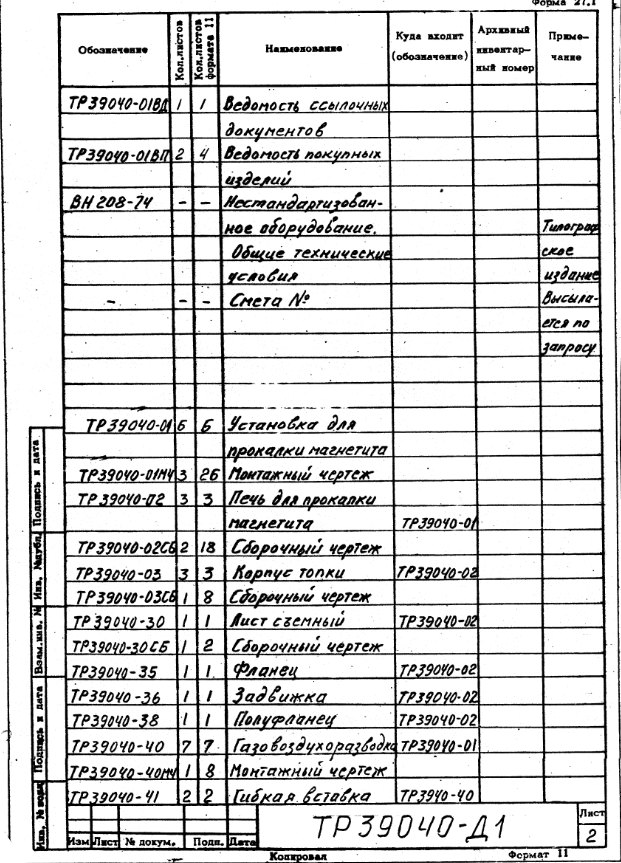 Форма 27.1
Обозначение Кол.листов Кол.листов формата 11 Наименование Куда входит (обозначение) Архивный инвентар- ный номер Приме- чание
ТР39040-01ВД 1 1 Ведомость ссылочных
документов
ТР39040-01ВП 2 4 Ведомость покупных
изделий
ВН 208-74 - - Нестандартизован-
ное оборудование. Типограф
Общие технические ское
условия издание
- - - Смета № Высыла-
ется по
запросу
ТР39040-01 6 6 Установка для
прокалки магнетита
ТР39040-01МЧ 3 26 Монтажный чертеж
ТР39040-02 3 3 Печь для прокалки
магнетита ТР39040-01
ТР39040-02СБ 2 18 Сборочный чертеж
ТР39040-03 3 3 Корпус топки ТР39040-02
ТР39040-03СБ 1 8 Сборочный чертеж
ТР39040-30 1 1 Лист съемный ТР39040-02
ТР39040-30СБ 1 2 Сборочный чертеж
ТР39040-35 1 1 Фланец ТР39040-02
ТР39040-36 1 1 Задвижка ТР39040-02
ТР39040-38 1 1 Полуфланец ТР39040-02
ТР39040-40 7 7 Газовоздухоразводка ТР39040-01
ТР39040-40МЧ 1 8 Монтажный чертеж
ТР39040-41 2 2 Гибкая вставка ТР3940-40
Изм Лист № докум. Подп. Дата
ТР39040-Д1
Лист
2
Копировал Формат 11
Подпись и дата
Инв. №дубл.
Взам.инв. №
Подпись и дата
Инв. № подл